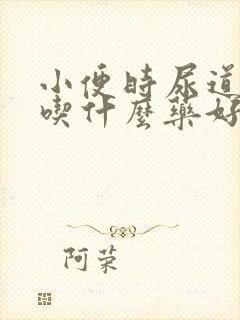 小便时尿道
喫什麼藥好
阿荣